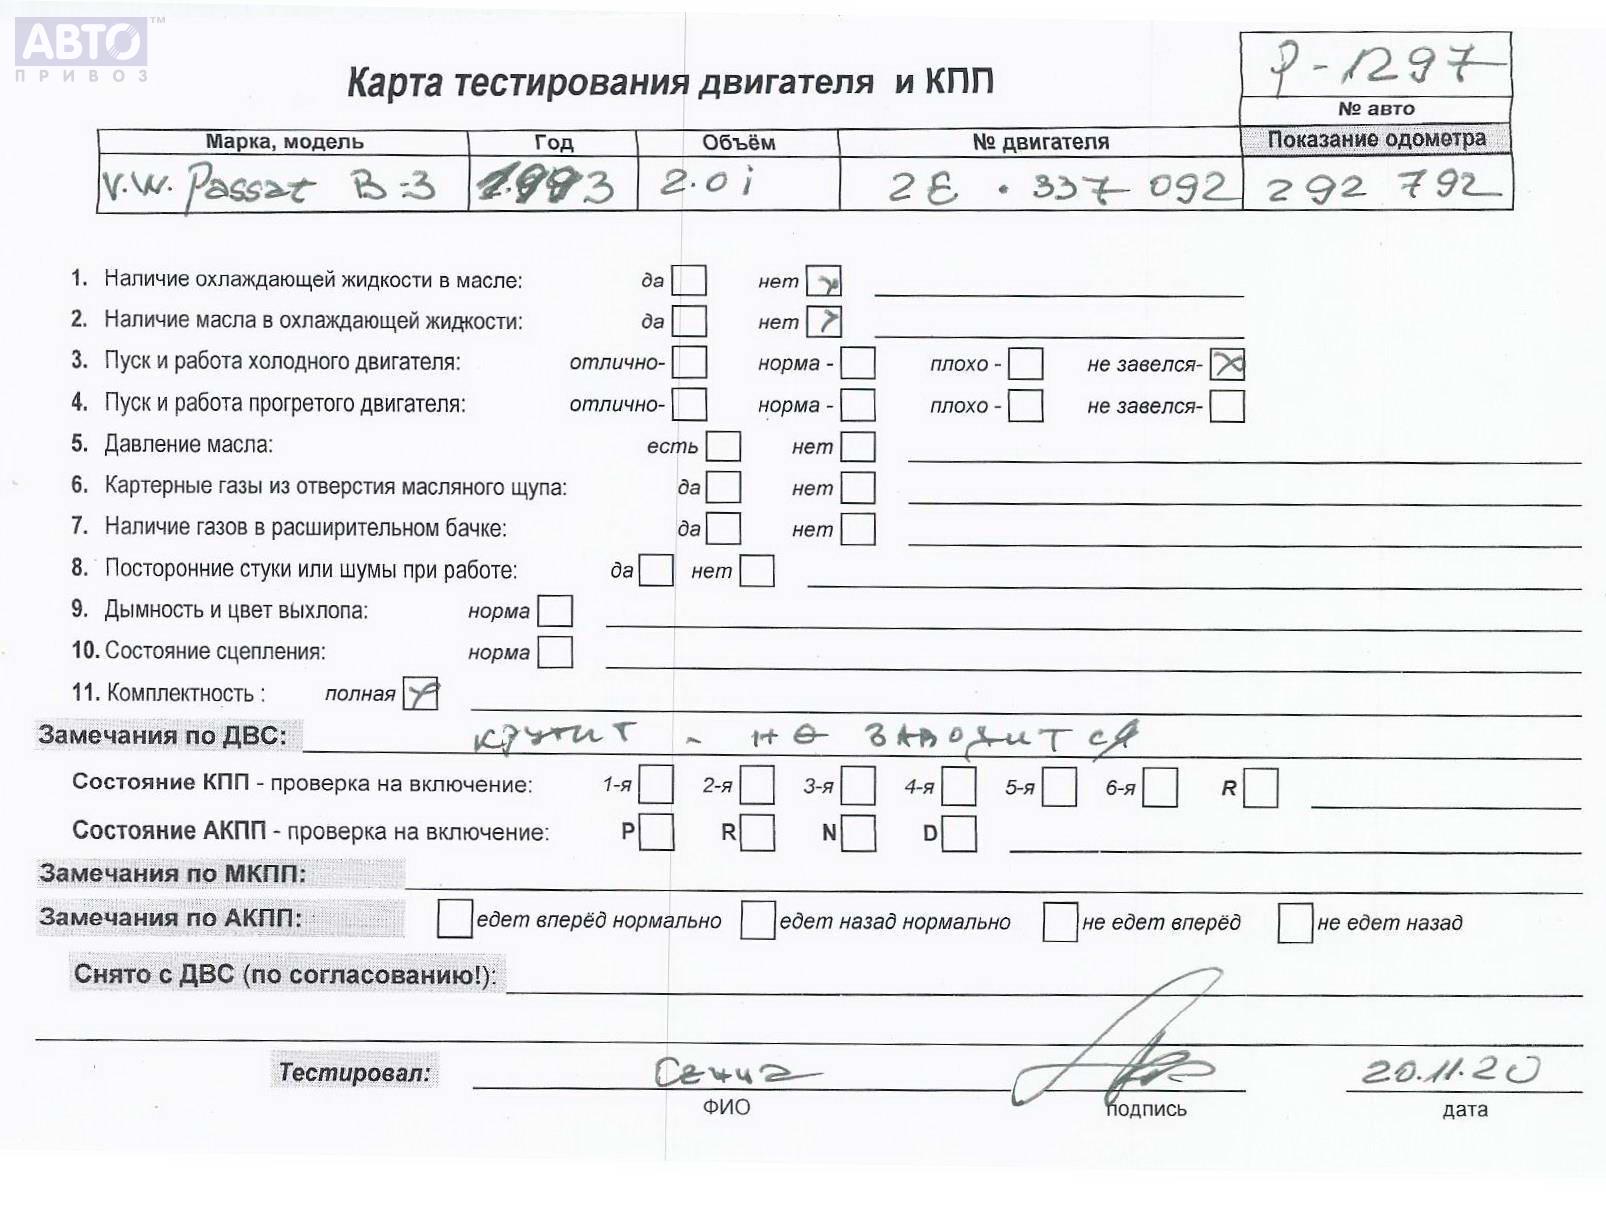 АВТО ™
ПРИВОЗ
Карта тестирования двигателя и КПП
P-1297
№ авто
Марка, модель Год Объём № двигателя Показание одометра
V.W. Passat B-3 1993 2.0i 2E . 337 092 292 792
1. Наличие охлаждающей жидкости в масле: да нет
2. Наличие масла в охлаждающей жидкости: да нет
3. Пуск и работа холодного двигателя: отлично- норма - плохо - не завелся-
4. Пуск и работа прогретого двигателя: отлично- норма - плохо - не завелся-
5. Давление масла: есть нет
6. Картерные газы из отверстия масляного щупа: да нет
7. Наличие газов в расширительном бачке: да нет
8. Посторонние стуки или шумы при работе: да нет
9. Дымность и цвет выхлопа: норма
10. Состояние сцепления: норма
11. Комплектность : полная
Замечания по ДВС: крутит - не заводится
Состояние КПП - проверка на включение: 1-я 2-я 3-я 4-я 5-я 6-я R
Состояние АКПП - проверка на включение: P R N D
Замечания по МКПП:
Замечания по АКПП: едет вперёд нормально едет назад нормально не едет вперёд не едет назад
Снято с ДВС (по согласованию!):
Тестировал: 20.11.20
ФИО подпись дата